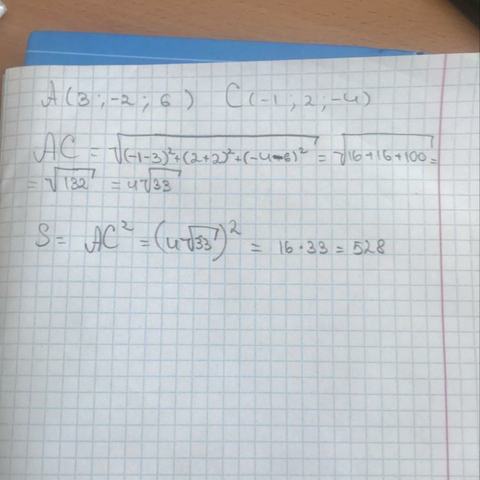 A(3;-2;6) C(-1;2;-4)
AC = √(-1-3)²+(2+2)²+(-4-6)² = √16+16+100 =
= √132 = 4√33
S = AC² = (4√33)² = 16·33 = 528